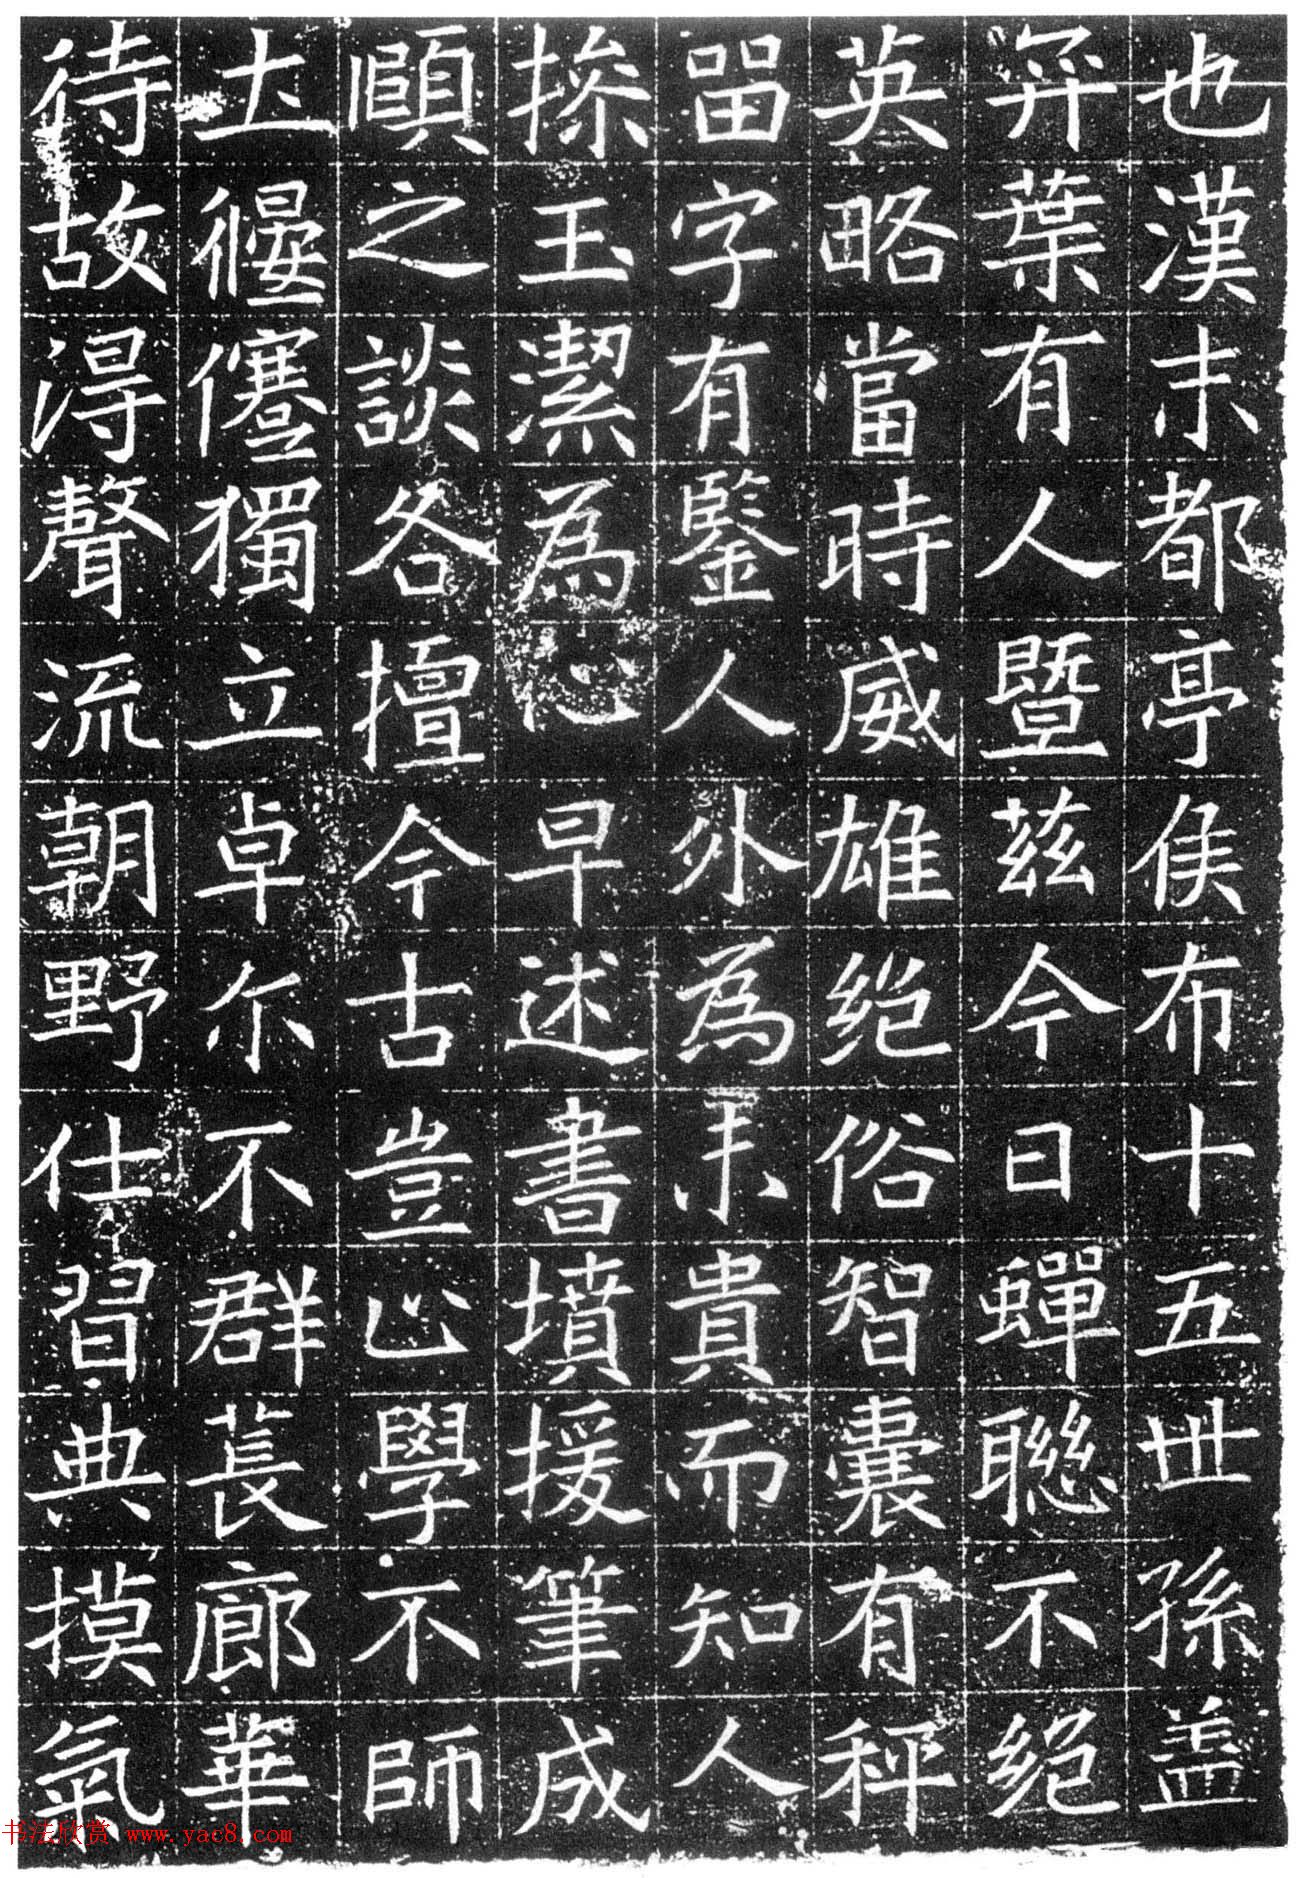 也漢末都亭侯布十五世孫蓋
弈葉有人暨茲今日蟬聯不絕
英略當時威雄絕俗智囊有秤
畱字有鑒人外為不貴而知人
操玉潔為心早述書墳援筆成
頤之談各擅今古豈止學不師
士偃蹇獨立卓尒不群萇廊華
待故淂聲流朝野仕習典摸氣
书法欣赏 www.yac8.com